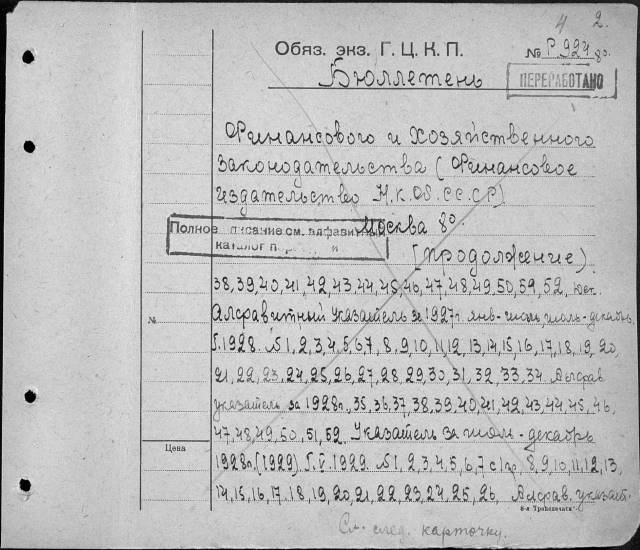 4 2.
Обяз. экз. Г. Ц. К. П. № P.924 8°.
Бюллетень
ПЕРЕРАБОТАНО
Финансового и Хозяйственного
Законодательства (Финансовое
издательство Н.К.Ф. СССР)
Москва 8°.
Полное описание см. алфавитный
каталог
(продолжение)
38, 39, 40, 41, 42, 43, 44, 45, 46, 47, 48, 49, 50, 59, 52,
Алфавитный указатель за 1927г. янв-июль, июль-декабрь
№
Г. 1928. №1, 2, 3, 4, 5, 6, 7, 8, 9, 10, 11, 12, 13, 14, 15, 16, 17, 18, 19, 20
21, 22, 23, 24, 25, 26, 27, 28, 29, 30, 31, 32, 33, 34. Алфав
указатель за 1928г., 35, 36, 37, 38, 39, 40, 41, 42, 43, 44, 45, 46,
47, 48, 49, 50, 51, 52. Указатель за июль-декабрь
Цена
1928г. (1929) Г. V. 1929. №1, 2, 3, 4, 5, 6, 7 с 1 пр., 8, 9, 10, 11, 12, 13,
14, 15, 16, 17, 18, 19, 20, 21, 22, 23, 24, 25, 26, Алфав. указат.
См. след. карточку.